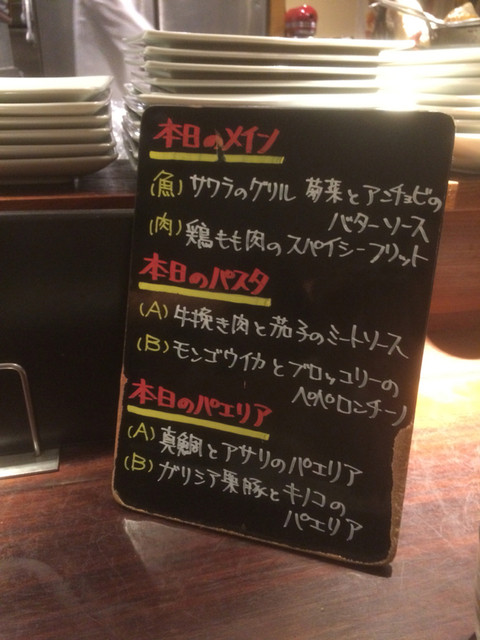 本日のメイン
(魚) サワラのグリル 菊菜とアンチョビの
バターソース
(肉) 鶏もも肉のスパイシーフリット
本日のパスタ
(A) 牛挽き肉と茄子のミートソース
(B) モンゴウイカとブロッコリーの
ペペロンチーノ
本日のパエリア
(A) 真鯛とアサリのパエリア
(B) ガリシア栗豚とキノコの
パエリア